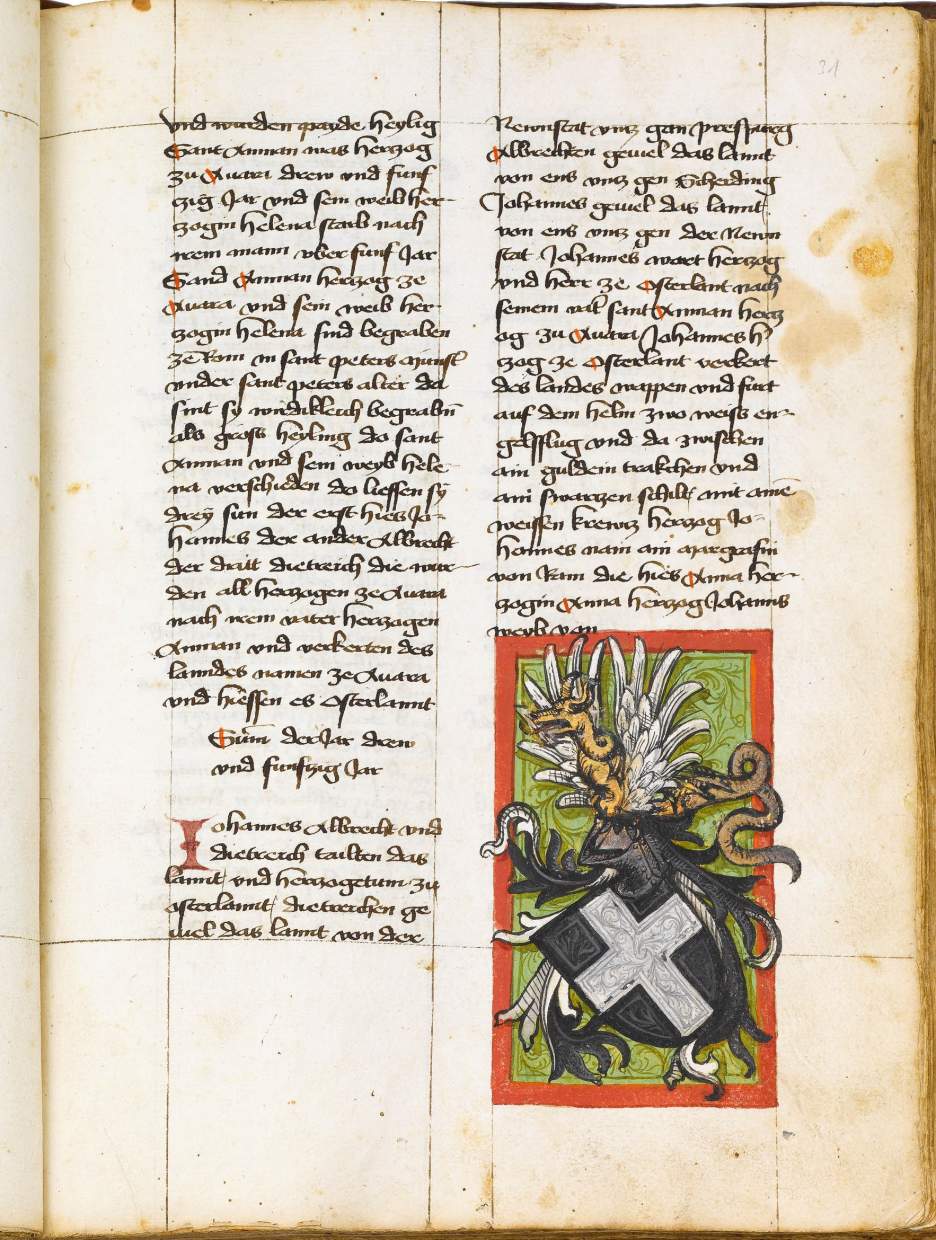 31
vnd wurden payde heylig
Sant Amman was herczog
zu Auara drew vnd funf
czig Jar vnd sein weib her-
zogin helena starb nach
irem mann vber funf Jar
Sand Amman herczog ze
Auara vnd sein weib her-
zogin helena sind begraben
ze Rom in sant peters munst
vnder sant peters alter da
sint sy wirdikleich begrabn
als gross heyling do sant
Amman vnd sein weyb hele-
na verschieden do liessen sy
drey sun der erst hies Jo-
hannes der ander Albrecht
der dritt dietreich die wur-
den all herczogen ze Auara
nach irem vater herczogen
Amman vnd verkerten des
lanndes namen ze Auara
vnd hiessen es Osterlannt
Sum der Jar drew
vnd funfzig Jar
Johannes Albrecht vnd
dietreich tailten das
lannt vnd herczogetum zu
osterlannt dietreichen ge
uiel das lannt von der
Newnstat vncz gan prespurg
Albrechten geuiel das lannt
von ens vncz gen Scherding
Johannes geuiel das lannt
von ens vncz gen der Newn
stat Johannes wart herczog
vnd herr ze Osterlant nach
seinem vat sant Amman hercz
og zu Auara Johannes h
zog ze Osterlant verkert
des landes wappen vnd furt
auf dem helm zwo weiss en-
gelsflug vnd da zwischen
ain guldein trakchen vnd
ain swarczen schilt mit aine
weissen krewcz herczog Jo-
hannes nam ain margrafin
von Ram die hies Anna her-
czogin Anna herczog Johanns
weyb von